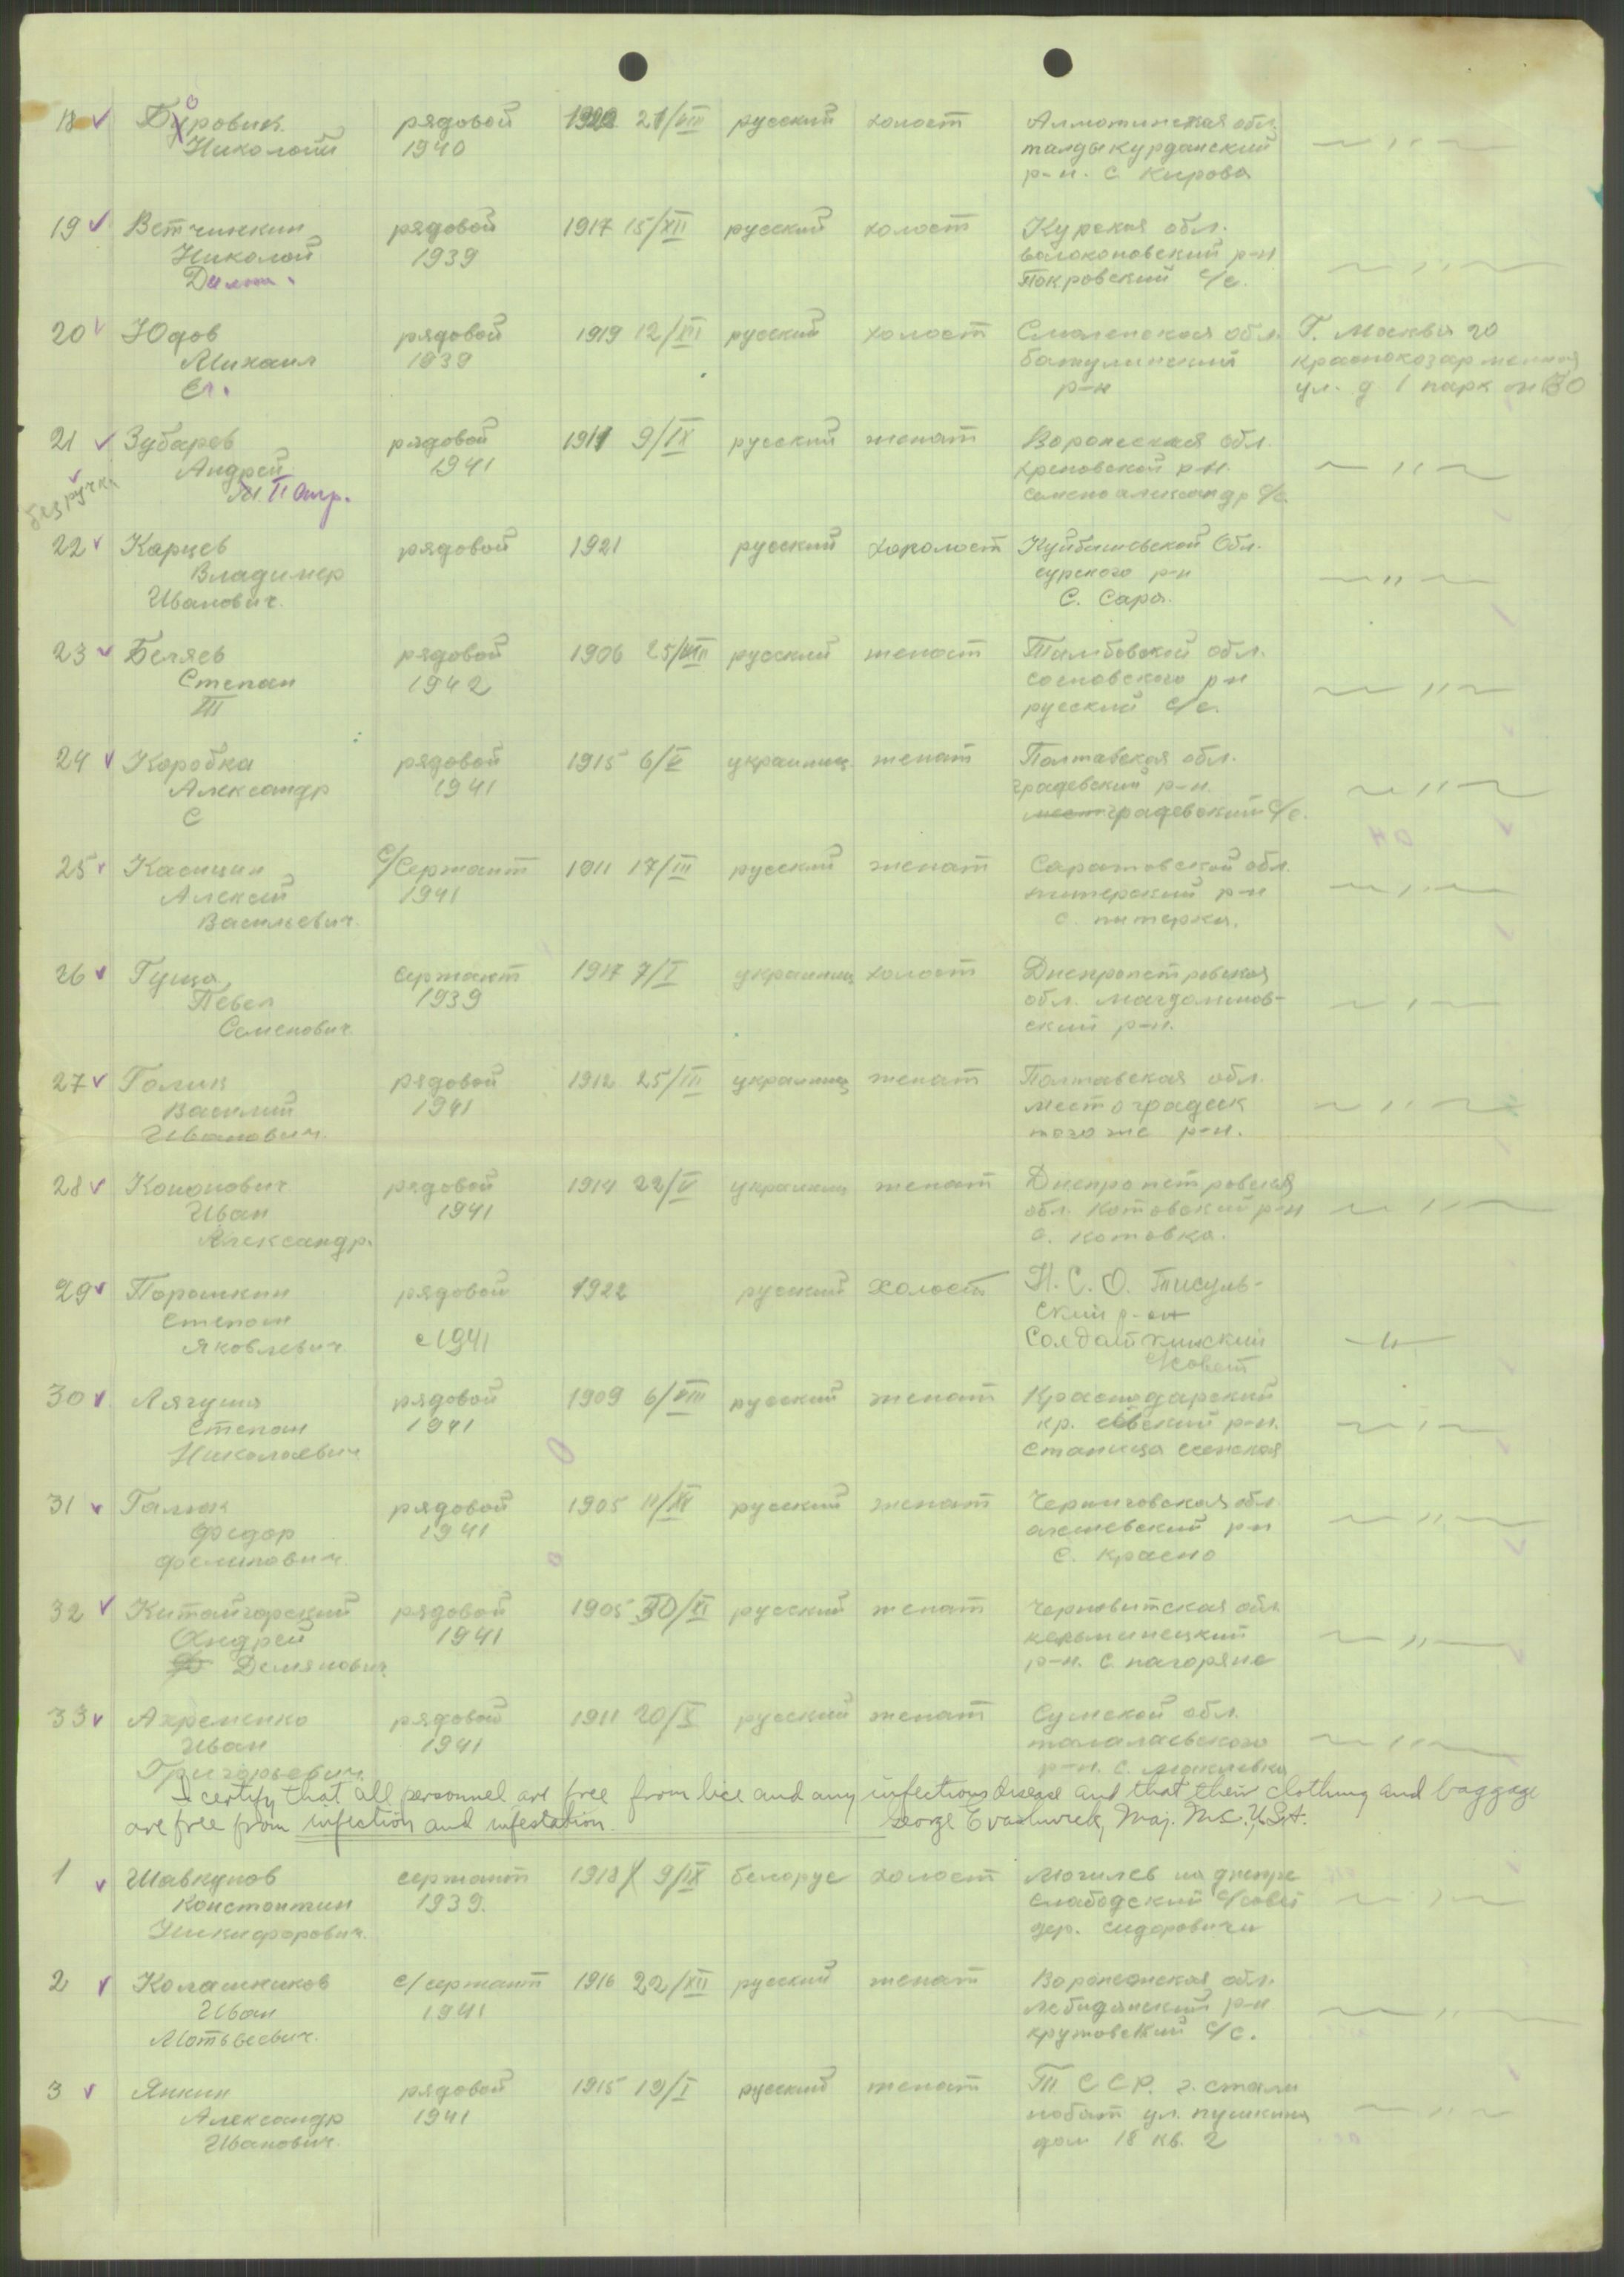 18 Боровик рядовой 1922 21/VIII русский холост Алмотинская обл.
Николай 1940 талдыкурданский
р-н. с Кирова
19 Ветчинкин рядовой 1917 15/XII русский холост Курская обл.
Николай 1939 волоконовский р-н
Дмит. Покровский с/с.
20 Юдов рядовой 1919 12/XII русский холост Смоленская обл. Г. Москва 20
Михаил 1939 батулинский
Ег. р-н ул. д 1 парк
21 Зубарев рядовой 1911 9/IX русский женат обл.
Андрей 1941 хреновской р-н.
без ручки с/с
22 Карцев рядовой 1921 русский Куйбашевской Обл.
Владимер сурского р-н
Иванович. С. Сара.
23 Беляев рядовой 1906 25/VIII русский женат Тамбовской обл.
Степан 1942 сосновского р-н
III русский с/с.
24 Коробка рядовой 1915 6/V украинец женат Полтавская обл.
Александр 1941 градевский р-н.
С градевский с/с.
25 Касицин с/Сержант 1911 17/III русский женат Саратовской обл.
Алексей 1941 питерский р-н
Васильевич. с. питерка.
26 Гуща сержант 1917 7/I украинец холост Днепропетровская
Певел 1939 обл. магдалинов-
Семенович. ский р-н.
27 Голик рядовой 1912 25/III украинец женат Полтавская обл.
Василий 1941 местоградск
Иванович. тогоже р-н.
28 Кононович рядовой 1914 22/V украинец женат Днепропетровская
Иван 1941 обл. Котовский р-н
Александр. с. котовка.
29 Порошкин рядовой 1922 русский холост Н. С. О. Тисуль-
Степан ский р-он
Яковлевич с 1941 Солдаткинский
с/совет
30 Лягуша рядовой 1909 6/VIII русский женат Краснодарский
Степан 1941 кр. р-н.
Николаевич станица
31 Галюк рядовой 1905 русский женат Черниговская обл
Федор 1941 р-н
с. красно
32 Китайгорский рядовой 1905 30/XI русский женат Черновитская обл
Андрей 1941 кельминецкий
Демянович р-н. с. нагоряно
33 Ахременко рядовой 1911 20/X русский женат Сумской обл.
Иван 1941 талалаевского
Григорьевич. р-н. с.
I certify that all personnel are free from lice and any infectious disease and that their clothing and baggage
are free from infection and infestation. George Evashwick, Maj. M.C. U.S.A.
1 Шавкунов сержант 1918 9/IX белорус холост Могилев на днепре
Константин 1939. слабодский с/совет
Никифорович. дер. сидоровичи
2 Колашников с/сержант 1916 22/XII русский женат Воронежская обл.
Иван 1941 лебидянский р-н
Мотьвеевич. крутовский с/с.
3 Янкин рядовой 1915 19/I русский женат Т ССР. г. стали
Александр 1941 нобат ул. пушкина
Иванович. дом 18 кв. 2